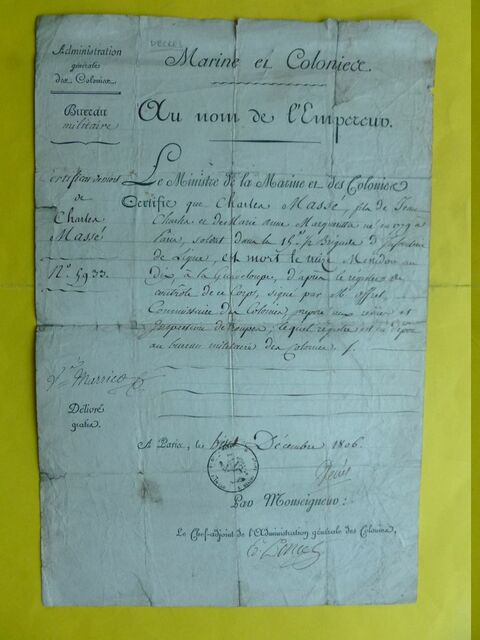 DÉCÈS
Administration
générale
des Colonies
Bureau
militaire
Certificat de mort
de
Charles
Massé
N.° 5933.
Marine et Colonies
Au nom de l'Empereur.
Le Ministre de la Marine et des Colonies
Certifie que Charles Massé, fils de Jean
Charles et de Marie Anne Margueritte né en 1779 à
Paris, soldat dans la 15.e ½ Brigade d'Infanterie
de Ligne, est mort le onze Messidor an
dix à la Guadeloupe, d'après le registre de
contrôle de ce Corps, signé par M.
Commissaire des Colonies, préposé aux revues et
Inspection de troupes; lequel registre est en dépôt
au bureau militaire des Colonies.
Délivré
gratis.
A Paris, le huit Décembre 1806.
Par Monseigneur:
Le Chef-adjoint de l'Administration générale des Colonies,